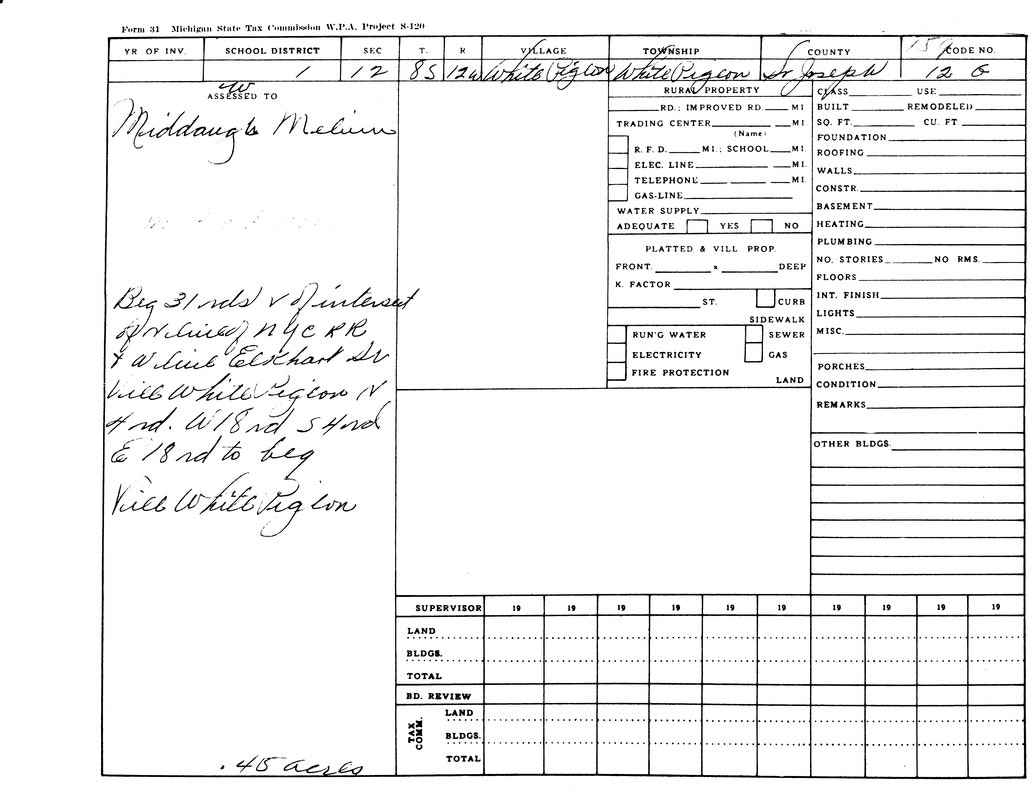 Form 31 Michigan State Tax Commission W.P.A. Project S-120
YR OF INV. SCHOOL DISTRICT SEC T. R VILLAGE TOWNSHIP COUNTY CODE NO.
159
1 12 8S 12W White Pigeon White Pigeon St Joseph 12 G
W
ASSESSED TO
Middaugh Melvin
Beg 31 rds N of intersect
of N line of NYC RR
& W line Elkhart St
Vill White Pigeon N
4 rd. W 18 rd S 4 rd
E 18 rd to beg
Vill White Pigeon
.45 acres
RURAL PROPERTY
RD.; IMPROVED RD. MI
TRADING CENTER MI.
(Name)
R. F. D. MI.; SCHOOL MI.
ELEC. LINE MI.
TELEPHONE MI.
GAS-LINE
WATER SUPPLY
ADEQUATE YES NO
PLATTED & VILL PROP.
FRONT. x DEEP
K. FACTOR
ST. CURB
SIDEWALK
RUN'G WATER SEWER
ELECTRICITY GAS
FIRE PROTECTION
LAND
CLASS USE
BUILT REMODELED
SQ. FT. CU. FT.
FOUNDATION
ROOFING
WALLS
CONSTR.
BASEMENT
HEATING
PLUMBING
NO. STORIES NO RMS.
FLOORS
INT. FINISH
LIGHTS
MISC.
PORCHES
CONDITION
REMARKS
OTHER BLDGS.
SUPERVISOR 19 19 19 19 19 19 19 19 19 19
LAND
BLDGS.
TOTAL
BD. REVIEW
TAX COMM.
LAND
BLDGS.
TOTAL